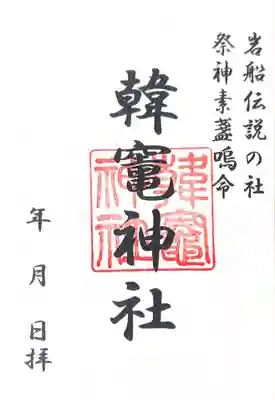 岩船伝説の社
祭神素盞嗚命
韓竈神社
韓竈神社
年 月 日拝